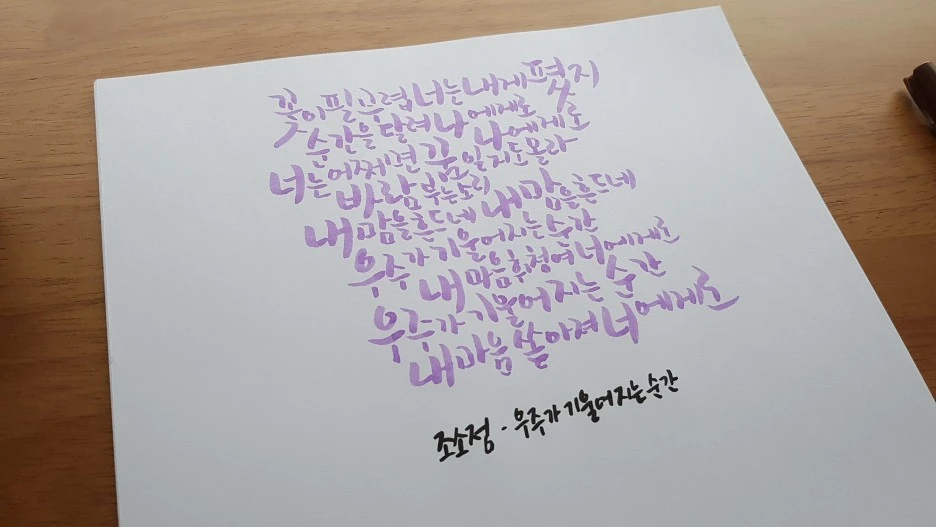 꽃이 필 무렵 너는 내게 폈지
순간을 달려 나에게로 나에게로
너는 어쩌면 꿈일지도 몰라
바람 부는 소리
내 맘을 흔드네 내 맘을 흔드네
우주가 기울어지는 순간
내 마음 휘청여 너에게로
우주가 기울어지는 순간
내 마음 쏟아져 너에게로
조소정 - 우주가 기울어지는 순간